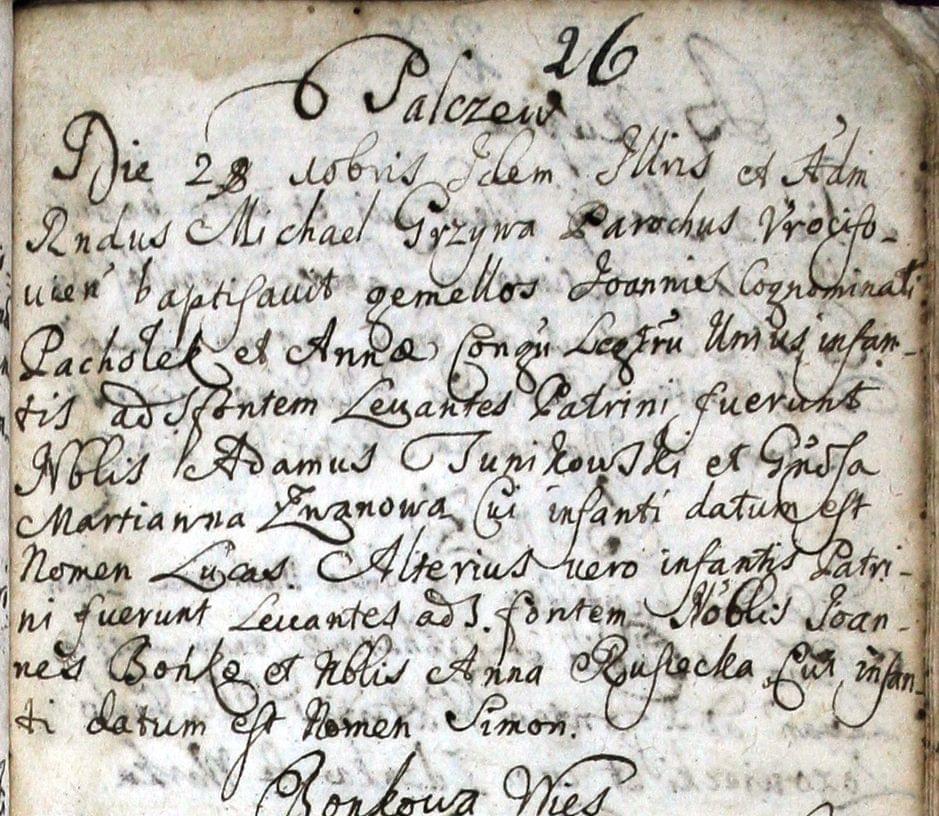 26
Palczew
Die 28 10bris Idem Illris et Adm
Rndus Michael Grzywa Parochus Vrociso-
vien baptisavit gemellos Joannis Cognominati
Pacholek et Annæ Congu Legtru Unius infan-
tis ad S fontem Levantes Patrini fuerunt
Nblis Adamus Tunikowski et Gnosa
Martianna Znanowa Cui infanti datum est
Nomen Lucas Alterius vero infantis Patri-
ni fuerunt Levantes ad S. fontem Noblis Joan-
nes et Nblis Anna Rusiecka Cui infan-
ti datum est Nomen Simon.
Bonkowa Wies